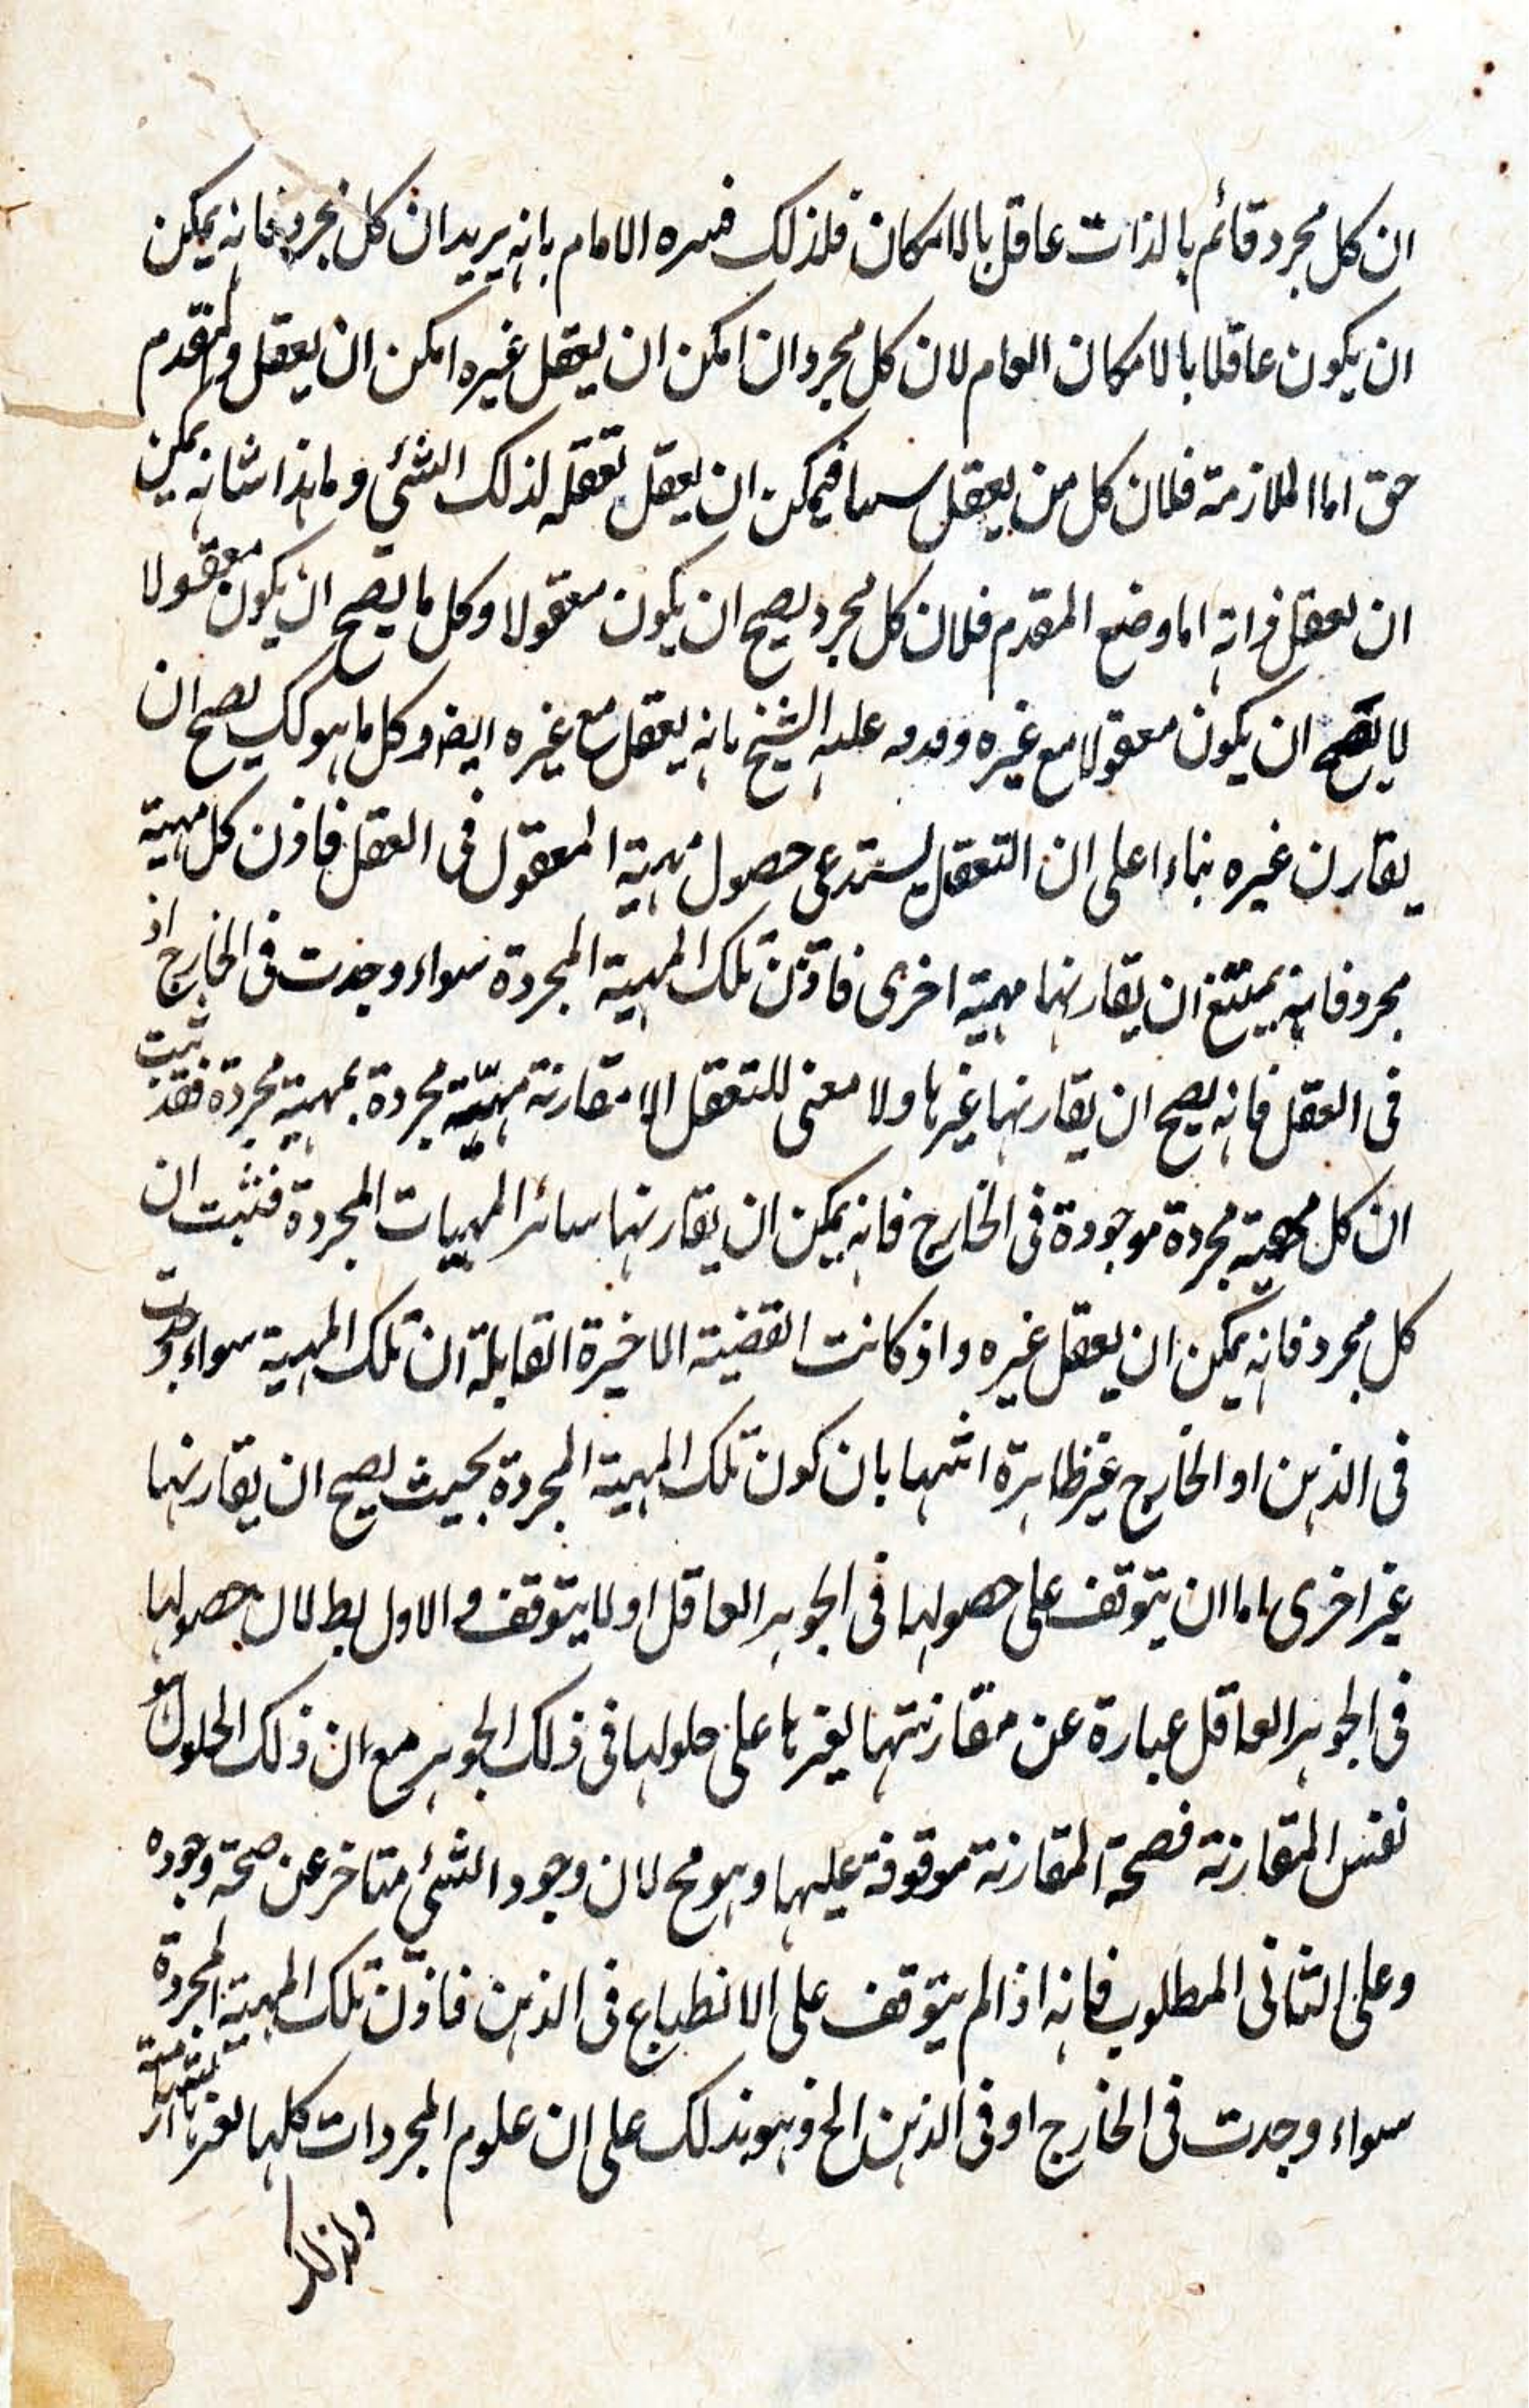 ان كل مجرد قائم بالذات عاقل بالامكان فلذلك فسره الامام بانه يريد ان كل مجرد فانه يمكن
ان يكون عاقلا بالامكان العام لان كل مجرد ان امكن ان يعقل غيره امكن ان يعقل والمقدم
حق اما الملازمة فلان كل من يعقل سیا فيمكن ان يعقل تعقله لذلك الشئي وما هذا شانه يمكن
ان يعقل ذاته اما وضع المقدم فلان كل مجرد يصح ان يكون معقولا وكل ما يصح ان يكون معقولا
لا يصح ان يكون معقولا مع غيره عليه الشيخ بانه يعقل مع غيره ايضا وكل ما هو كك يصح ان
يقارن غيره بناءا على ان التعقل يستدعى حصول مهية المعقول فى العقل فاذن كل مهية
مجرد فانه يمتنع ان يقارنها مهية اخرى فاذن تلك المهية المجردة سواء وجدت فى الخارج اذ
فى العقل فانه يصح ان يقارنها غيرها ولا معنى للتعقل الا مقارنة مهية مجردة بمهية مجردة فقد ثبت
ان كل مهية مجردة موجودة فى الخارج فانه يمكن ان يقارنها سائر المهيات المجردة فثبت ان
كل مجرد فانه يمكن ان يعقل غيره واذ كانت القضية الاخيرة القابلة ان تلك المهية سواء وجدت
فى الذهن او الخارج غير ظاهرة اثبتها بان كون تلك المهية المجردة بحيث يصح ان يقارنها
غير اخرى اما ان يتوقف على حصولها فى الجوهر العاقل او لا يتوقف والاول بط لان حصولها
فى الجوهر العاقل عبارة عن مقارنتها لغيرها على حلولها فى ذلك الجوهر مع ان ذلك الحلول هو
نفس المقارنة فصحة المقارنة موقوفة عليها وهو مح لان وجود الشئي متاخر عن صحة وجوده
وعلى الثانى المطلوب فانه اذا لم يتوقف على الانطباع فى الذهن فاذن تلك المهية المجردة
سواء وجدت فى الخارج او فى الذهن الخ وهو بذلك على ان علوم المجردات كلها لغيرها
ولذلك